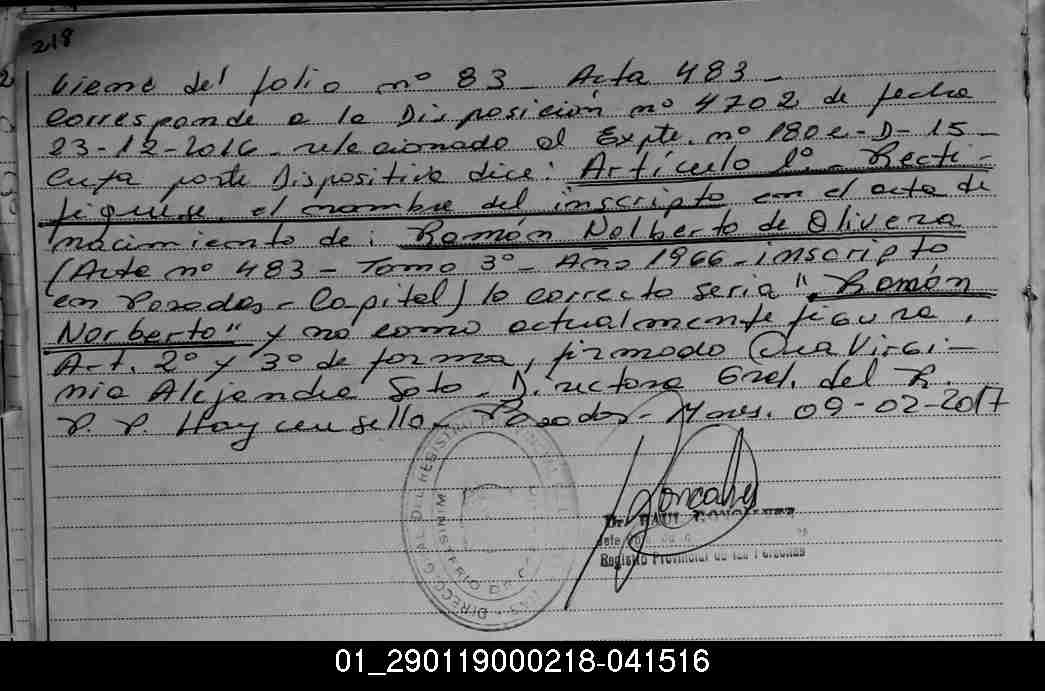 218
Viene del folio nº 83 - Acta 483 -
Corresponde a la Disposición nº 4702 de fecha
23-12-2016 - relacionado al Expte. nº 1802-D-15 -
Cuya parte Dispositiva dice: Artículo 1º - Recti-
fiquese el nombre del inscripto en el acta de
nacimiento de: Ramón Nolberto de Olivera
(Acta nº 483 - Tomo 3º - Año 1966 - inscripto
en Posadas - Capital) lo correcto seria "Ramón
Norberto" y no como actualmente figura,
Art. 2º y 3º de forma, firmado Ana Virgi-
nia Alejandra Soto. Directora Gral. del R.
P. P. Hay un sello - Posadas - Mnes. 09-02-2017
DIRECC. GRAL. DEL REGIST
MINISTERIO
RAUL
Registro Provincial de las Personas
01_290119000218-041516